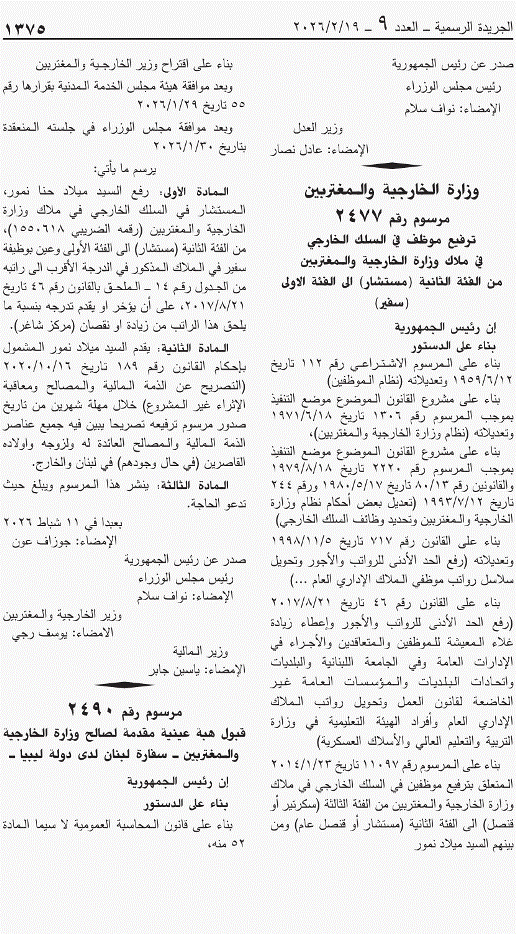 الجريدة الرسمية ــ العدد ٩ ــ ٢٠٢٦/٢/١٩
١٣٧٥
صدر عن رئيس الجمهورية
رئيس مجلس الوزراء
الإمضاء: نواف سلام
وزير العدل
الإمضاء: عادل نصار
وزارة الخارجية والمغتربين
مرسوم رقم ٢٤٧٧
ترفيع موظف في السلك الخارجي
في ملاك وزارة الخارجية والمغتربين
من الفئة الثانية (مستشار) الى الفئة الاولى
(سفير)
إن رئيس الجمهورية
بناء على الدستور
بناء على المرسوم الاشتراعي رقم ١١٢ تاريخ
١٩٥٩/٦/١٢ وتعديلاته (نظام الموظفين)
بناء على مشروع القانون الموضوع موضع التنفيذ
بموجب المرسوم رقم ١٣٠٦ تاريخ ١٩٧١/٦/١٨
وتعديلاته (نظام وزارة الخارجية والمغتربين)،
بناء على مشروع القانون الموضوع موضع التنفيذ
بموجب المرسوم رقم ٢٢٢٠ تاريخ ١٩٧٩/٨/١٨
والقانونين رقم ٨٠/١٣ تاريخ ١٩٨٠/٥/١٧ ورقم ٢٤٤
تاريخ ١٩٩٣/٧/١٢ (تعديل بعض أحكام نظام وزارة
الخارجية والمغتربين وتحديد وظائف السلك الخارجي)
بناء على القانون رقم ٧١٧ تاريخ ١٩٩٨/١١/٥
وتعديلاته (رفع الحد الأدنى للرواتب والأجور وتحويل
سلاسل رواتب موظفي الملاك الإداري العام ...)
بناء على القانون رقم ٤٦ تاريخ ٢٠١٧/٨/٢١
(رفع الحد الأدنى للرواتب والأجور وإعطاء زيادة
غلاء المعيشة للموظفين والمتعاقدين والأجراء في
الإدارات العامة وفي الجامعة اللبنانية والبلديات
واتحادات البلديات والمؤسسات العامة غير
الخاضعة لقانون العمل وتحويل رواتب الملاك
الإداري العام وأفراد الهيئة التعليمية في وزارة
التربية والتعليم العالي والأسلاك العسكرية)
بناء على المرسوم رقم ١١٠٩٧ تاريخ ٢٠١٤/١/٢٣
المتعلق بترفيع موظفين في السلك الخارجي في ملاك
وزارة الخارجية والمغتربين من الفئة الثالثة (سكرتير أو
قنصل) الى الفئة الثانية (مستشار أو قنصل عام) ومن
بينهم السيد ميلاد نمور
بناء على اقتراح وزير الخارجية والمغتربين
وبعد موافقة هيئة مجلس الخدمة المدنية بقرارها رقم
٥٥ تاريخ ٢٠٢٦/١/٢٩
وبعد موافقة مجلس الوزراء في جلسته المنعقدة
بتاريخ ٢٠٢٦/١/٣٠
يرسم ما يأتي:
المادة الأولى: رفع السيد ميلاد حنا نمور،
المستشار في السلك الخارجي في ملاك وزارة
الخارجية والمغتربين (رقمه الضريبي ١٥٥٠٦١٨)،
من الفئة الثانية (مستشار) الى الفئة الأولى وعين بوظيفة
سفير في الملاك المذكور في الدرجة الأقرب الى راتبه
من الجدول رقم ١٤ ــ الملحق بالقانون رقم ٤٦ تاريخ
٢٠١٧/٨/٢١، على أن يؤخر او يقدم تدرجه بنسبة ما
يلحق هذا الراتب من زيادة او نقصان (مركز شاغر).
المادة الثانية: يقدم السيد ميلاد نمور المشمول
بإحكام القانون رقم ١٨٩ تاريخ ٢٠٢٠/١٠/١٦
(التصريح عن الذمة المالية والمصالح ومعاقبة
الإثراء غير المشروع) خلال مهلة شهرين من تاريخ
صدور مرسوم ترفيعه تصريحا يبين فيه جميع عناصر
الذمة المالية والمصالح العائدة له ولزوجه واولاده
القاصرين (في حال وجودهم) في لبنان والخارج.
المادة الثالثة: ينشر هذا المرسوم ويبلغ حيث
تدعو الحاجة.
بعبدا في ١١ شباط ٢٠٢٦
الإمضاء: جوزاف عون
صدر عن رئيس الجمهورية
رئيس مجلس الوزراء
الإمضاء: نواف سلام
وزير الخارجية والمغتربين
الامضاء: يوسف رجي
وزير المالية
الإمضاء: ياسين جابر
مرسوم رقم ٢٤٩٠
قبول هبة عينية مقدمة لصالح وزارة الخارجية
والمغتربين ــ سفارة لبنان لدى دولة ليبيا ــ
إن رئيس الجمهورية
بناء على الدستور
بناء على قانون المحاسبة العمومية لا سيما المادة
٥٢ منه،